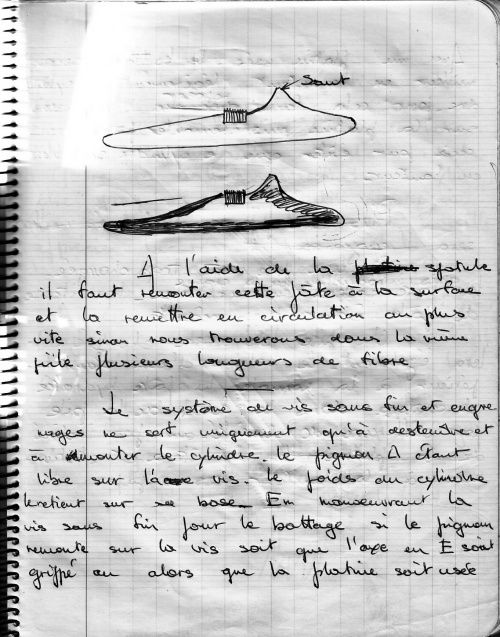 Saut
A l'aide de la spatule
il faut remonter cette pâte à la surface
et la remettre en circulation au plus
vite sinon nous trouverons dans la même
pile plusieurs longueurs de fibre
Le système de vis sans fin et engre
nages ne sert uniquement qu'à descendre et
à remonter le cylindre. le pignon A étant
libre sur l'axe vis. le poids du cylindre
le retient sur sa base. En manoeuvrant la
vis sans fin pour le battage si le pignon
remonte sur la vis soit que l'axe en E soit
grippé ou alors que la platine soit usée